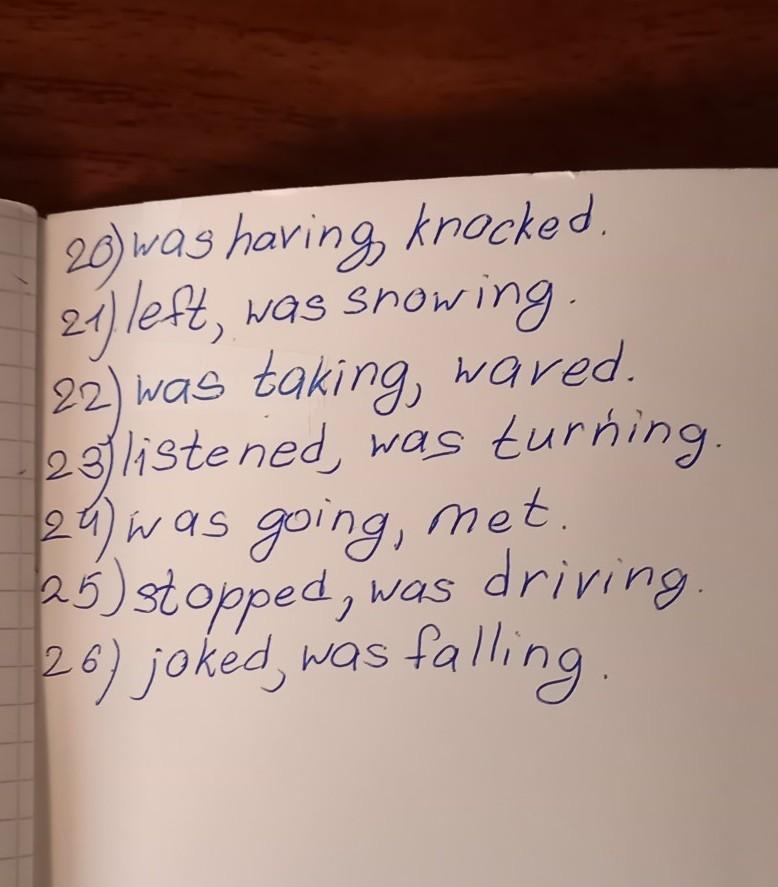 20) was having, knocked.
21) left, was snowing.
22) was taking, waved.
23) listened, was turning.
24) was going, met.
25) stopped, was driving.
26) joked, was falling.